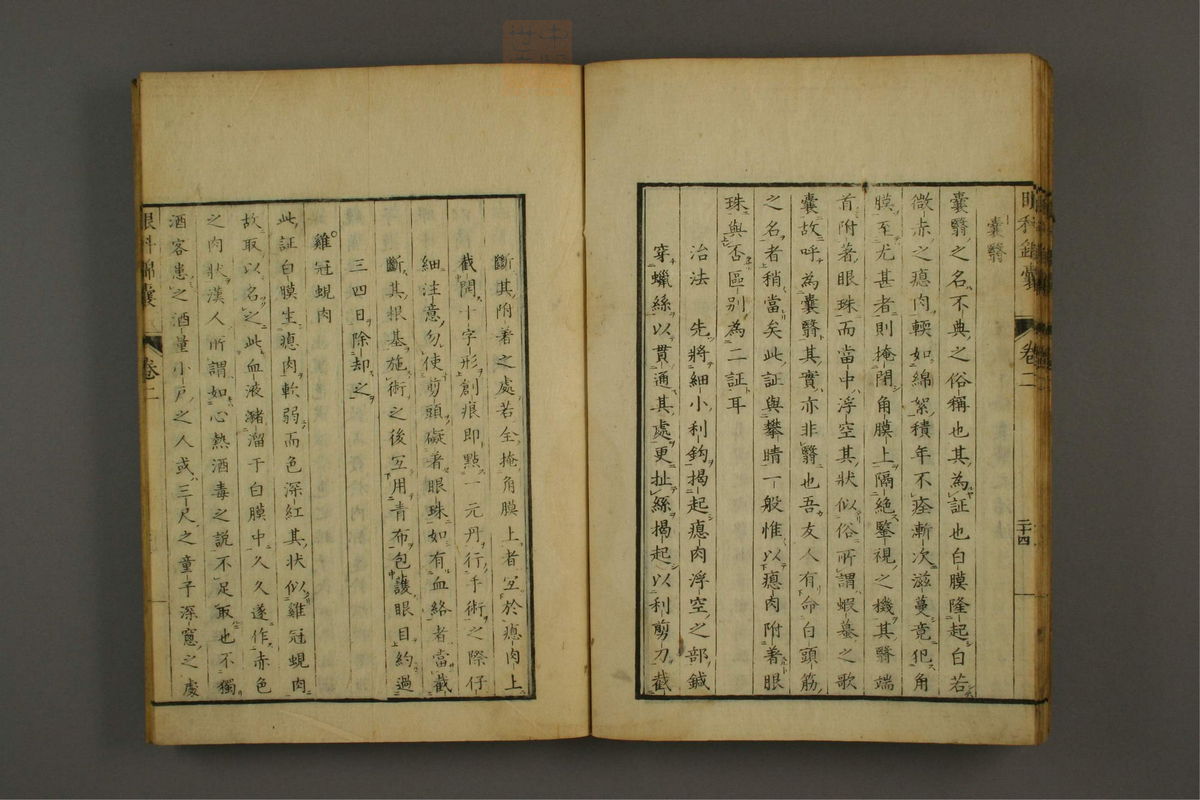 眼科錦囊 卷二 二十四
囊翳
囊翳之名不典之俗稱也其為証也白膜隆起白若
微赤之瘜肉輭如綿絮積年不痊漸次滋蔓竟犯角
膜至尤甚者則掩閉角膜上隔絕鑒視之機其翳端
首附著眼珠而當中浮空其狀似俗所謂蝦蟇之歌
囊故呼為囊翳其實亦非翳也吾友人有命白頭筋
之名者稍當矣此証與攀睛一般惟以瘜肉附著眼
珠與否區別為二証耳
治法 先將細小利鈎揭起瘜肉浮空之部鍼
穿蠟絲以貫通其處更扯絲揭起以利剪刀截
斷其附著之處若全掩角膜上者宜於瘜肉上
截開十字形創痕即點一元丹行手術之際仔
細注意勿使剪頭礙著眼珠如有血絡者當截
斷其根基施術之後宜用青布包護眼目約過
三四日除却之
雞冠蜆肉
此証白膜生瘜肉軟弱而色深紅其狀似雞冠蜆肉
故取以名之此血液瀦溜于白膜中久久遂作赤色
之肉狀漢人所謂如心熱酒毒之說不足取也不獨
酒客患之酒量小戶之人或三尺之童子深窻之處
眼科錦囊 卷二